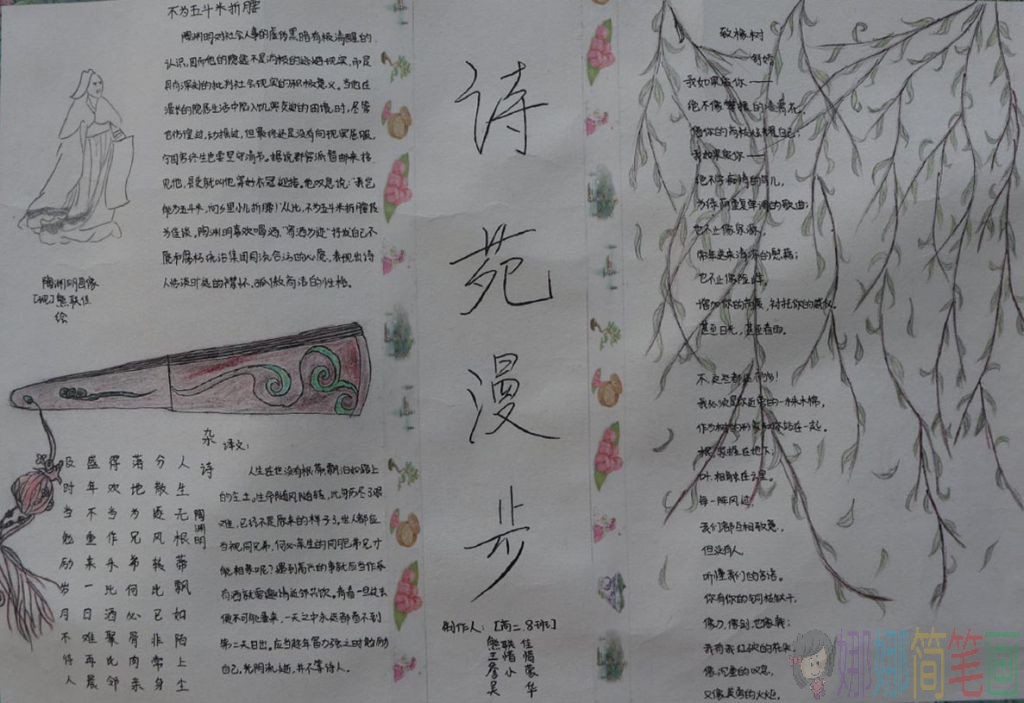 不为五斗米折腰
陶渊明对社会人事的虚伪黑暗有极清醒的
认识,因而他的隐逸不是消极的逃避现实,而是
具有深刻的批判社会现实的积极意义。当他在
漫长的隐居生活中陷入饥寒交迫的困境时,尽管
也彷徨过,动摇过,但最终还是没有向现实屈服,
见他,县吏就叫他穿好衣冠迎接。他叹息说:
为佳谈,陶渊明喜欢喝酒,"寄酒为迹"抒发自己不
愿和腐朽统治集团同流合污的心愿,表现出诗
人恬淡旷远的襟怀、孤傲高洁的性格。
陶渊明画像
熊联佳
绘
杂诗
陶渊明
人生无根蒂飘如陌上尘
分散逐风转此已非常身
落地为兄弟何必骨肉亲
得欢当作乐斗酒聚比邻
盛年不重来一日难再晨
及时当勉励岁月不待人
译文:
人生在世没有根蒂,飘泊如路上
的尘土。生命随风飘转,此身历尽了艰
难,已经不是原来的样子了。世人都应
当视同兄弟,何必亲生的同胞弟兄才
能相亲呢?遇到高兴的事就应当作乐,
有酒就要邀请近邻共饮。青春一旦过去
便不可能重来,一天之中永远都看不到
第二天日出。应当趁年富力强之时勉励
自己,光阴流逝,并不等待人。
诗苑漫步
制作人:[高二.8班]
熊联佳
王惜惜
詹小蒙
吴华
致橡树
舒婷
我如果爱你——
绝不像攀援的凌霄花,
借你的高枝炫耀自己;
我如果爱你——
绝不学痴情的鸟儿,
为绿荫重复单调的歌曲;
也不止像泉源,
常年送来清凉的慰藉;
也不止像险峰,
增加你的高度,衬托你的威仪。
甚至日光,甚至春雨。
不,这些都还不够!
我必须是你近旁的一株木棉,
作为树的形象和你站在一起。
根,紧握在地下;
叶,相触在云里。
每一阵风过,
我们都互相致意,
但没有人,
听懂我们的言语。
你有你的铜枝铁干,
像刀,像剑,也像戟;
我有我红硕的花朵,
像沉重的叹息,
又像英勇的火炬。
娜娜简笔画